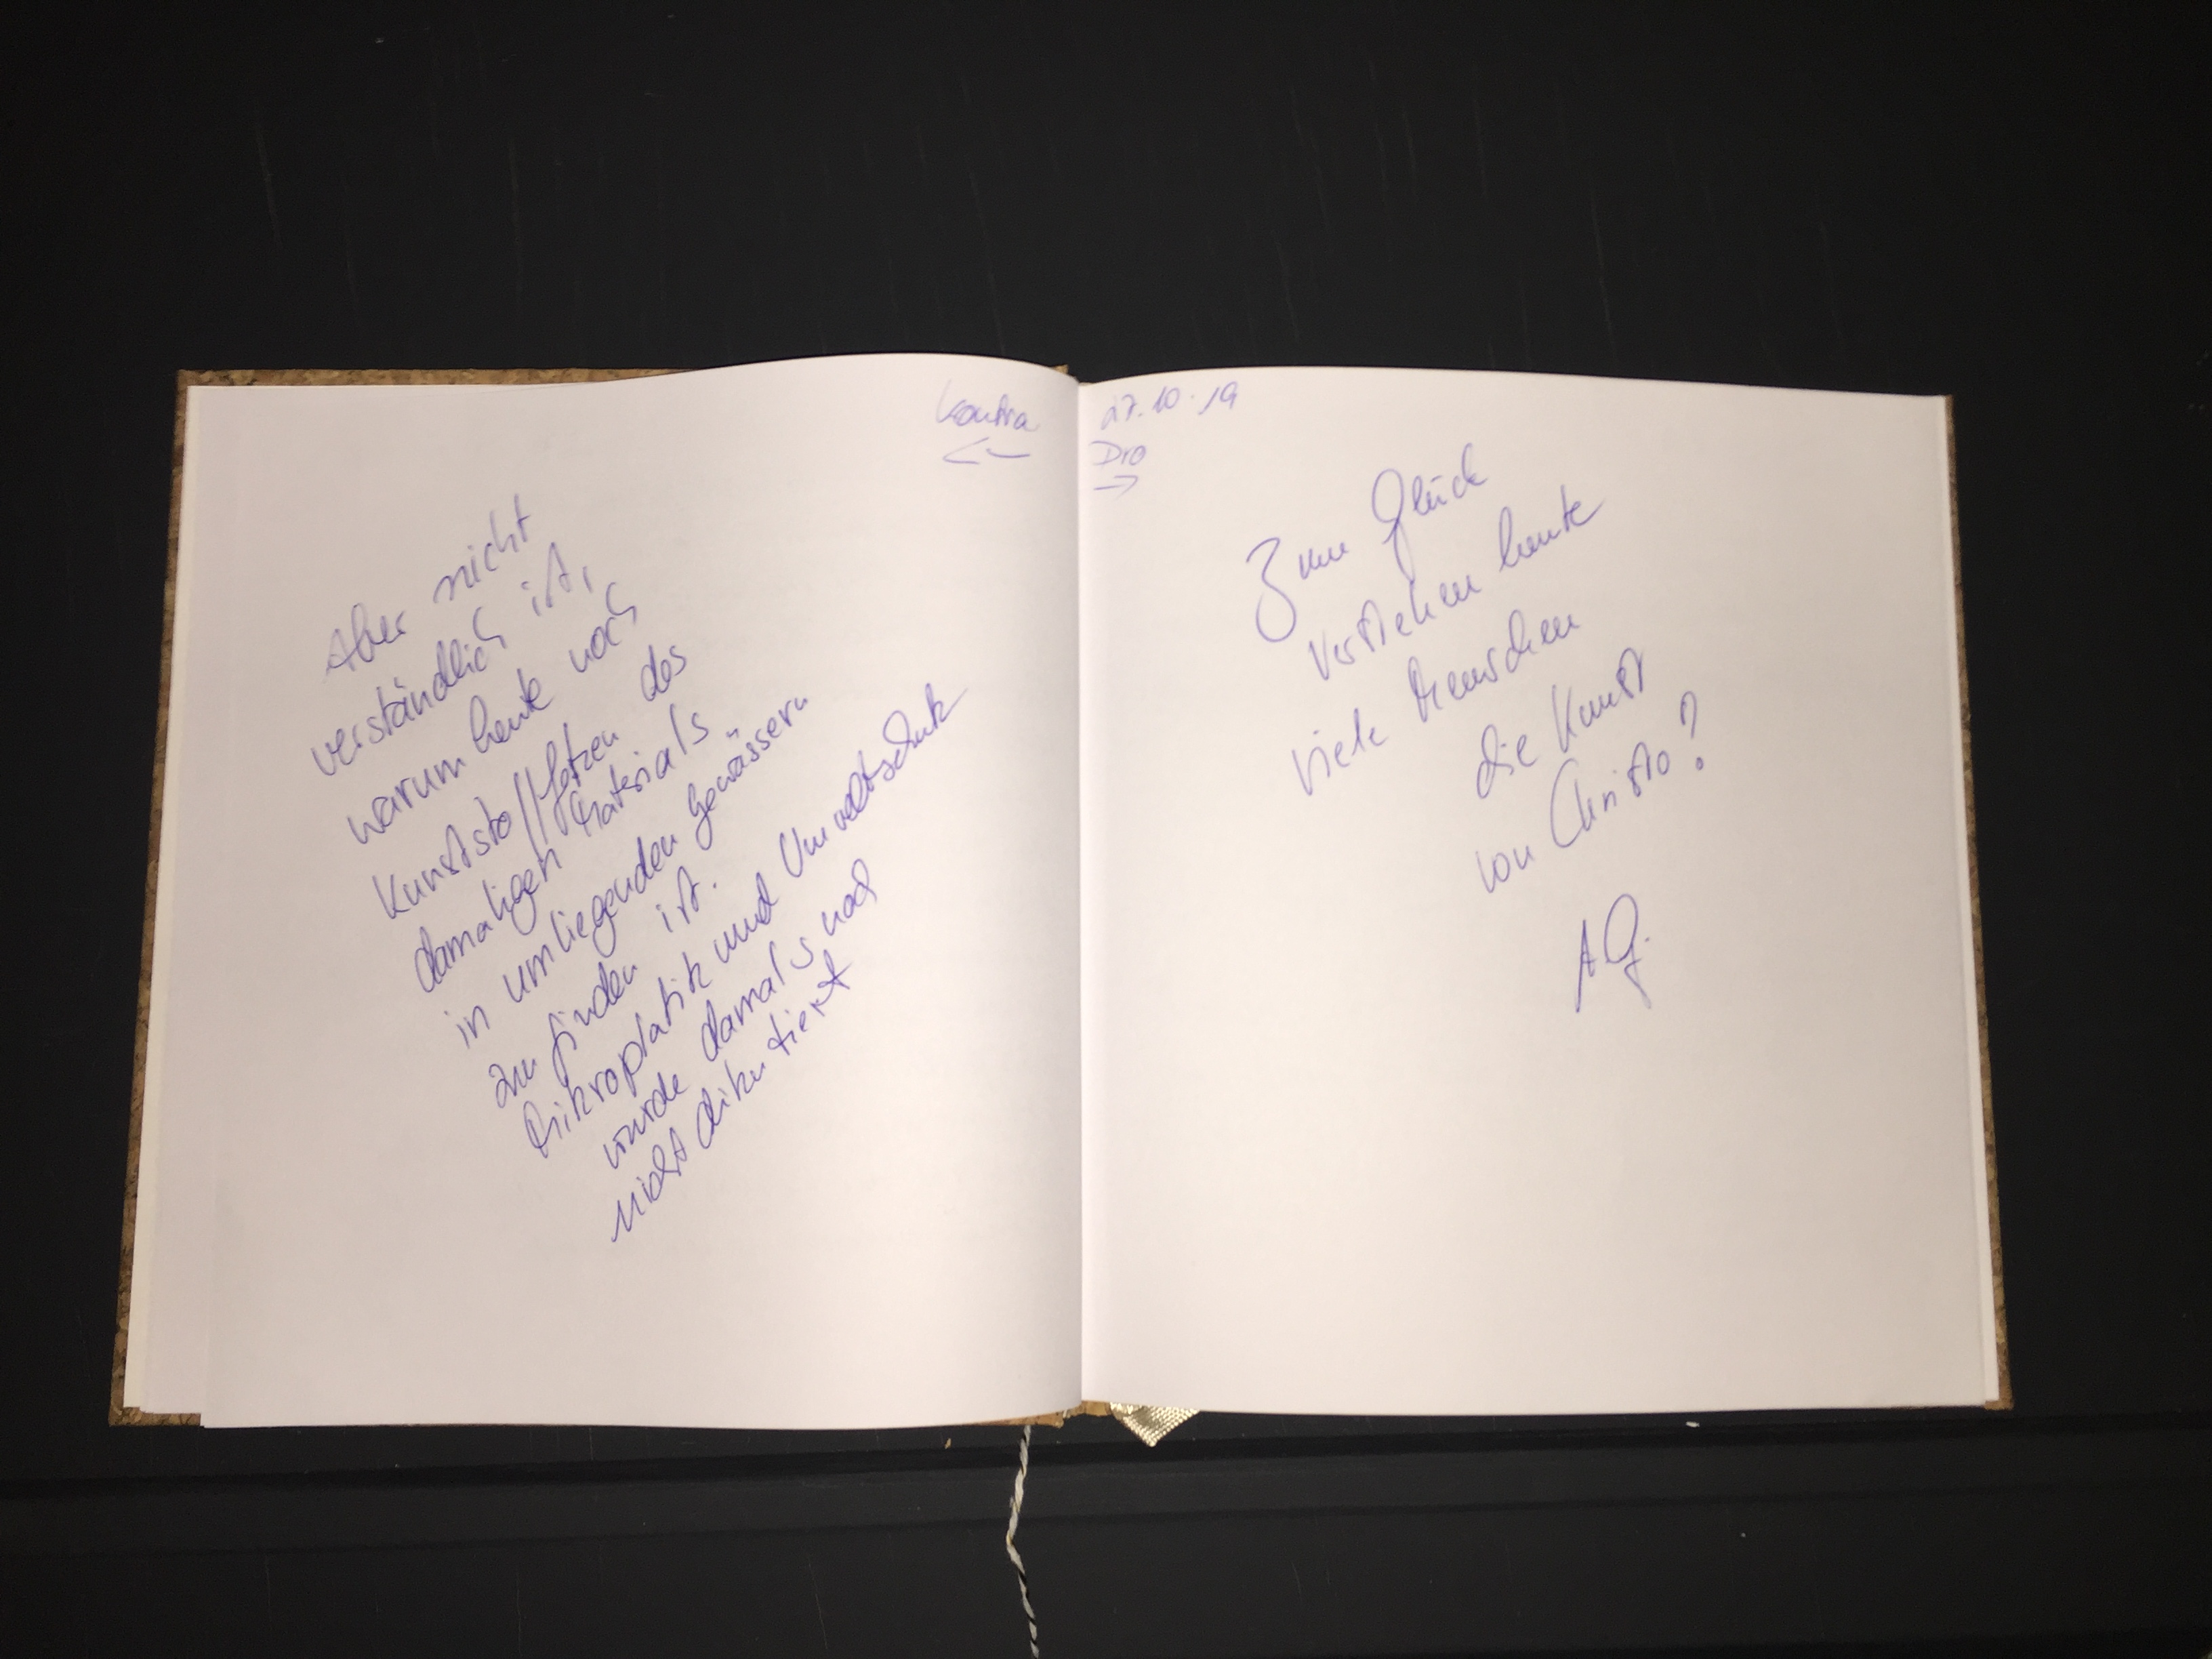 Kontra
←
Aber nicht
verständlich ist,
warum heute noch
Kunststofffetzen des
damaligen Materials
in umliegenden Gewässern
zu finden ist.
Mikroplatik und Umweltschutz
wurde damals noch
nicht dikutiert
27.10.19
Pro
→
Zum Glück
verstehen heute
viele Menschen
die Kunst
von Christo?
AG.